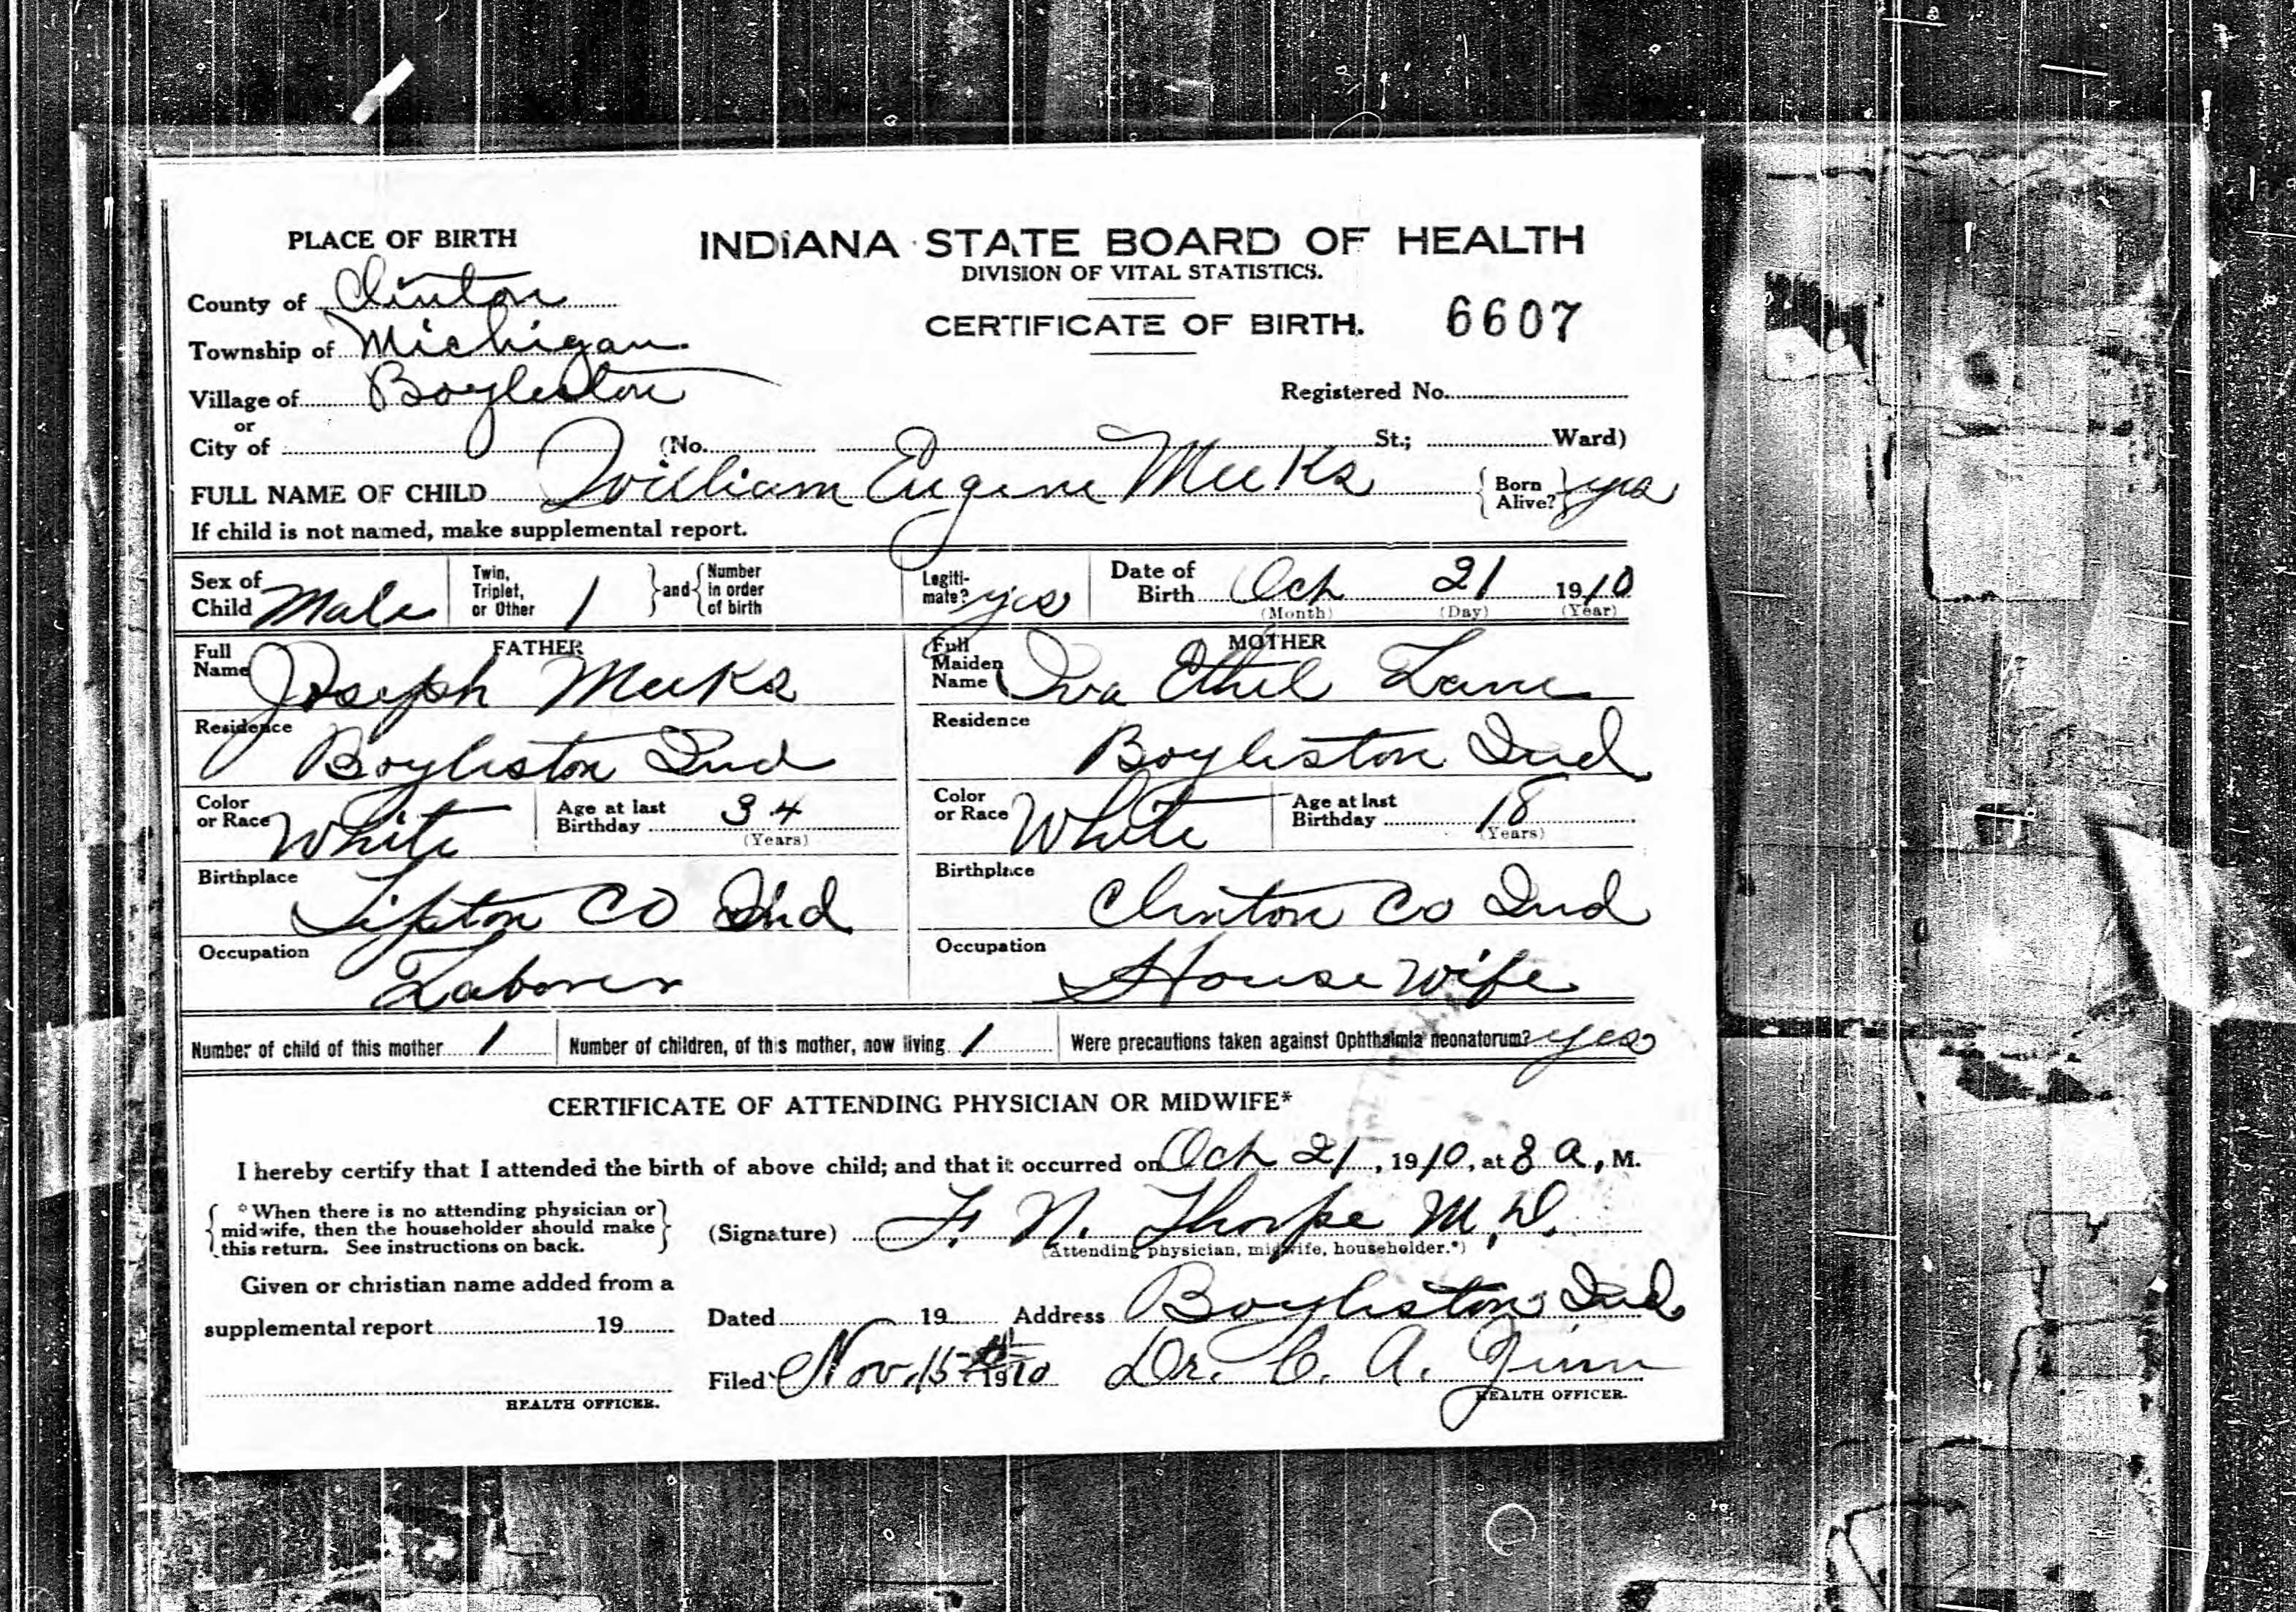 PLACE OF BIRTH
INDIANA STATE BOARD OF HEALTH
DIVISION OF VITAL STATISTICS.
County of Clinton
CERTIFICATE OF BIRTH. 6607
Township of Michigan
Village of Boyleston
Registered No.
or
City of (No. St.; Ward)
FULL NAME OF CHILD William Eugene Meeks Born Alive? yes
If child is not named, make supplemental report.
Sex of Child Male Twin, Triplet, or Other 1 and Number in order of birth Legiti-mate? yes Date of Birth Oct 21 1910
(Month) (Day) (Year)
FATHER MOTHER
Full Name Joseph Meeks Full Maiden Name Iva Ethel Lane
Residence Boyleston Ind Residence Boyleston Ind
Color or Race White Age at last Birthday 34 (Years) Color or Race White Age at last Birthday 18 (Years)
Birthplace Tipton Co Ind Birthplace Clinton Co Ind
Occupation Laborer Occupation House Wife
Number of child of this mother 1 Number of children, of this mother, now living 1 Were precautions taken against Ophthalmia neonatorum? yes
CERTIFICATE OF ATTENDING PHYSICIAN OR MIDWIFE*
I hereby certify that I attended the birth of above child; and that it occurred on Oct 21, 1910, at 8 a, M.
*When there is no attending physician or
midwife, then the householder should make
this return. See instructions on back.
(Signature) F. N. Thorpe M, D.
(Attending physician, midwife, householder.*)
Given or christian name added from a
supplemental report 19
Dated 19 Address Boyleston Ind
Filed Nov. 15 1910 Dr. C. A. Zinn
HEALTH OFFICER. HEALTH OFFICER.